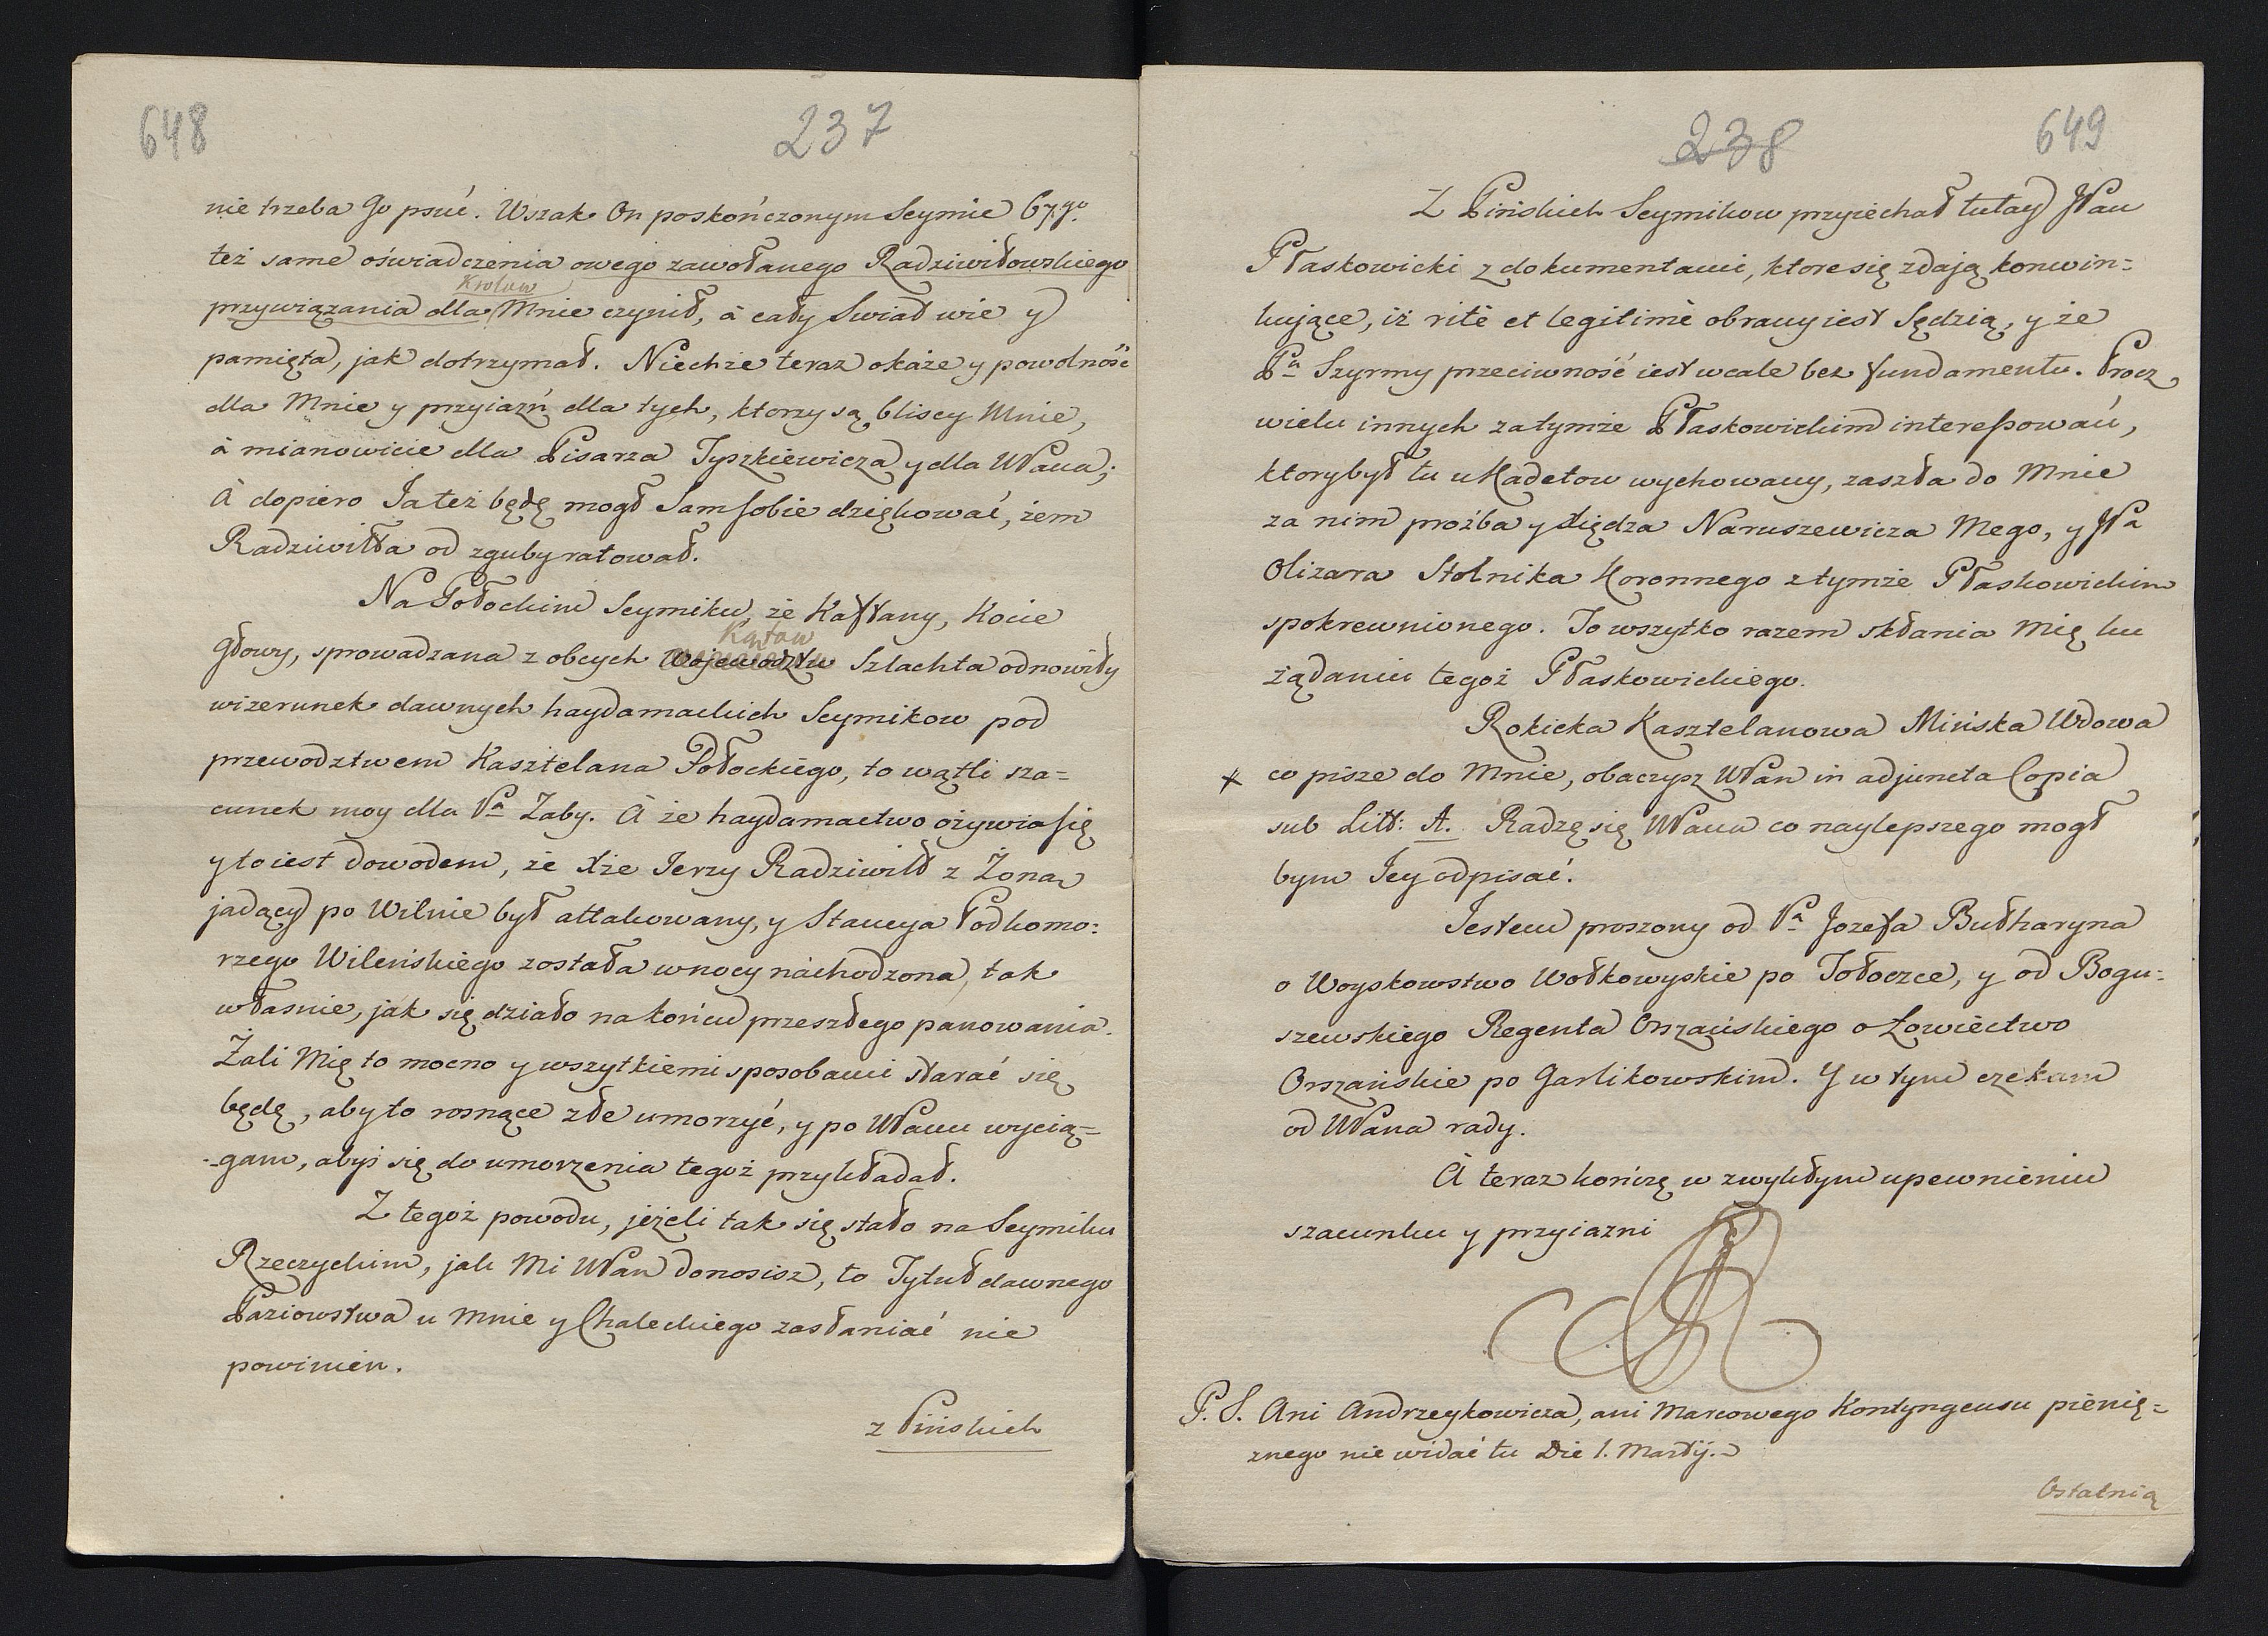 648
237
nie trzeba Go psuć. Wszak On po skończonym Seymie 67go.
też same oświadczenia owego zawołanego Radziwiłowskiego
Krolow
przywiązania dla Mnie czynił, à cały Swiad wie y
pamięta, jak dotrzymał. Niechże teraz okaże y powolność
dla Mnie y przyiazń dla tych, ktorzy są bliscy Mnie,
à mianowicie dla Pisarza Tyszkiewicza y dla WPana;
À dopiero Ja też będę mogł Sam sobie dziękować, żem
Radziwiłła od zguby ratował.
Na Połockim Seymiku, że Kaftany, Kocie
Kątow
głowy, sprowadzana z obcych Wojewodztw Szlachta odnowiły
wizerunek dawnych haydamackich Seymikow pod
przewodztwem Kasztelana Połockiego, to wątli sza=
cunek moy dla Pa Żaby. À że haydamactwo ożywia się
y to iest dowodem, że Xże Jerzy Radziwiłł z Żoną
jadący po Wilnie był attakowany, y Stancya Podkomo:
rzego Wileńskiego została w nocy nachodzona, tak
własnie, jak się działo na końcu przeszłego panowania.
Żali Mię to mocno y wszytkiemi sposobami starać się
będę, aby to rosnące złe umorzyć, y po WPanu wycią=
-gam, abyś się do umorzenia tegoż przykładał.
Z tegoż powodu, jeżeli tak się stało na Seymiku
Rzeczyckim, jak Mi WPan donosisz, to Tytuł dawnego
Paziowstwa u Mnie y Chaleckiego zasłaniać nie
powinien.
z Pińskich
238
649
Z Pińskich Seymikow przyiechał tutay JPan
Płaskowicki z dokumentami, ktore się zdają konwin=
kujące, iż ritè et legitimè obrany iest Sędzią, y że
Pa Szyrmy przeciwność iest wcale bez fundamentu. Procz
wielu innych za tymże Płaskowickim interessowań,
ktory był tu u Kadetow wychowany, zaszła do Mnie
za nim proźba y Xiędza Naruszewicza Mego, y JPa
Olizara Stolnika Koronnego z tymże Płaskowickim
spokrewnionego. To wszytko razem skłania Mię ku
żądaniu tegoż Płaskowickiego.
Rokicka Kasztelanowa Mińska Wdowa
x co pisze do Mnie, obaczysz WPan in adjuncta Copia
sub Litt: A. Radzę się WPana co naylepszego mogł
bym Jey odpisać.
Jestem proszony od Pa Jozefa Bułharyna
o Woyskowstwo Wołkowyskie po Tołoczce, y od Bogu=
szewskiego Regenta Orszańskiego o Łowiectwo
Orszańskie po Garlikowskim. Y w tym czekam
od WPana rady.
À teraz kończę w zwykłym upewnieniu
szacunku y przyiazni
P. S. Ani Andrzeykowicza, ani Marcowego Kontyngensu pienię=
znego nie widać tu Die 1. Martij.
Ostatnią